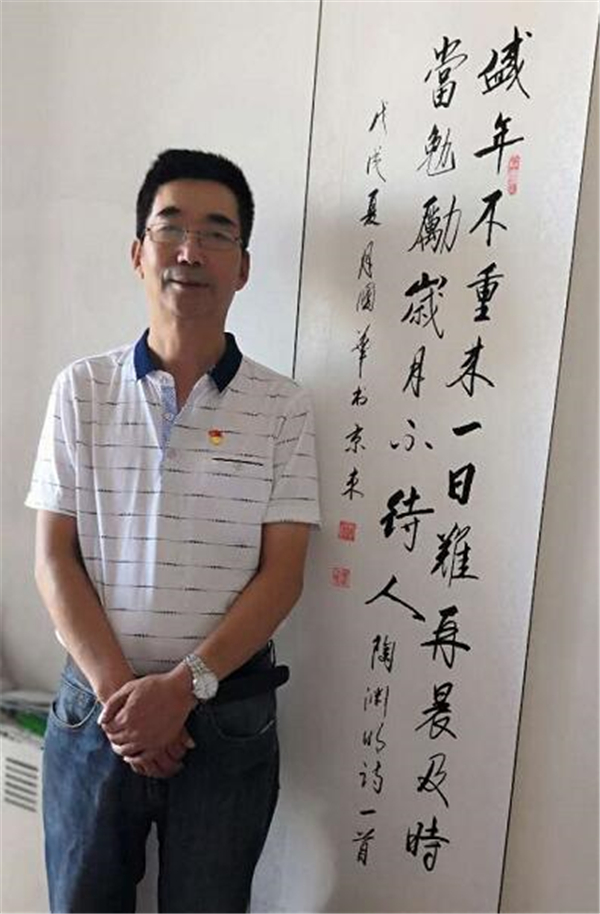 盛年不重来一日難再晨及時
當勉勵歲月不待人陶渊明诗一首
戊戌夏月國華书京